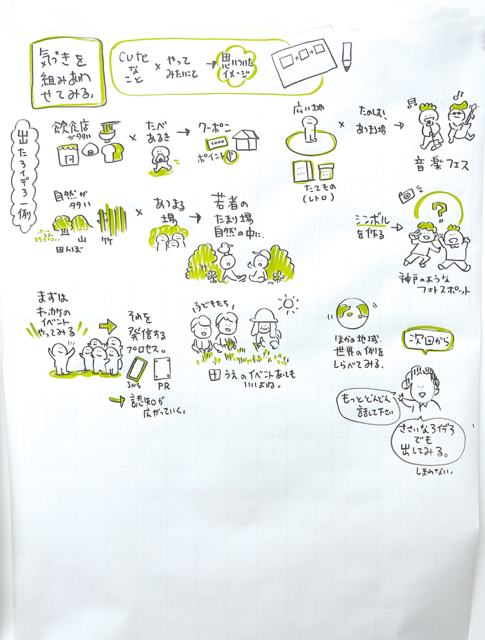 気づきを
組みあわ
せてみる。
cuteなこと × やってみたいこと → 思いついたイメージ
出たアイデア一例
飲食店が多い × たべあるき → クーポン
ポイント P
広い土地 × たのしい あつまり場 → 音楽フェス
たてもの
(レトロ)
自然が多い × あつまる場 → 若者のたまり場 自然の中に。
田んぼ 山 竹
シンボルを作る
?
神戸のような
フォトスポット
まずは
キッカケの
イベント
やってみる
それを
発信する
プロセス。
SNS PR
→ 認知が
広がっていく。
子どもたち
田うえのイベントあっても
いいよね。
ほかの地域、
世界の例を
しらべてみる。
次回から
もっとどんどん
話して下さい
ささいなアイデア
でも
出してみる。
しまわない。